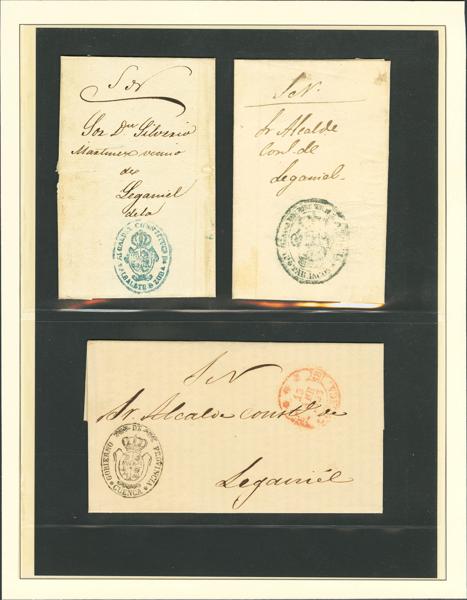 S N
Sor Dn Silverio
Martinez vecino
de
Leganiel
ALCALDIA CONSTITUCL DE
ALBALATE D ZORITA
S N.
Sr Alcalde
Conl. de
Leganiel.
S N
Sr. Alcalde Constl. de
Leganiél
GOBIERNO DE PROVINCIA
CUENCA